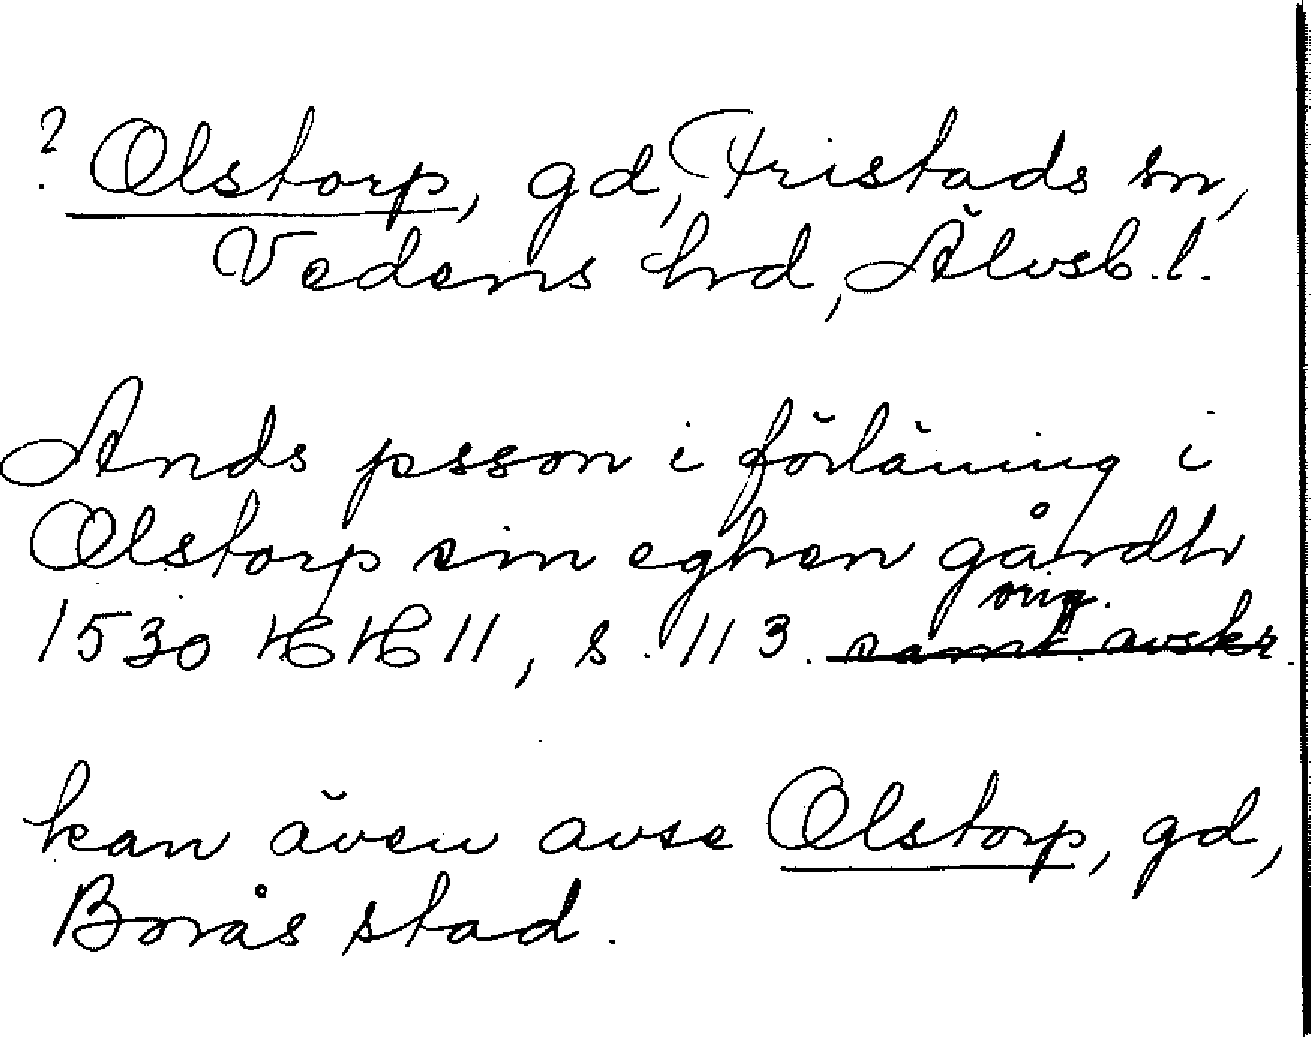 ? Olstorp, gd, Fristads sn,
Vedens hrd, Älvsb. l.
Ands psson i förläning i
Olstorp sin eghen gårdh
orig.
1530 HH 11, s. 113. samt avskr.
kan även avse Olstorp, gd,
Borås stad.